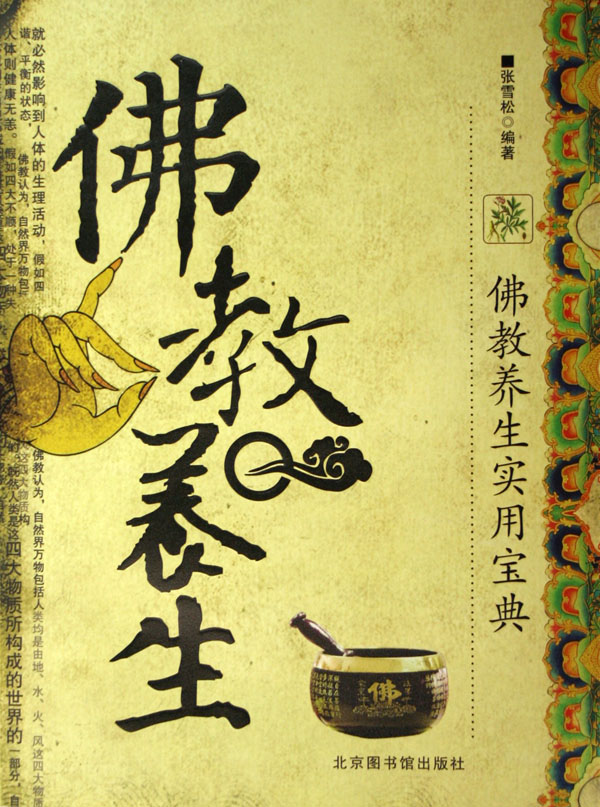 佛教养生
■张雪松◎编著
佛教养生实用宝典
佛
北京图书馆出版社
就必然影响到人体的生理活动，假如四
谐、平衡的状态，
人体则健康无恙。假如四大不顺，处于一种失
佛教认为，自然界万物包
佛教认为，自然界万物包括人类均是由地、水、火、风这四大物质
这四大物质构
既然人类是这四大物质所构成的世界的一部分，自